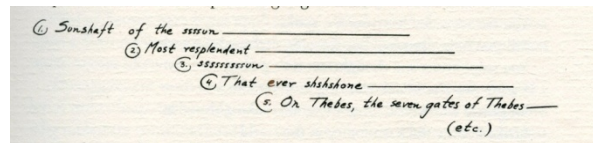 ① Sunshaft of the sssssun
② Most resplendent
③. ssssssssssun
④ That ever shshshone
⑤. On Thebes, the seven gates of Thebes
(etc.)